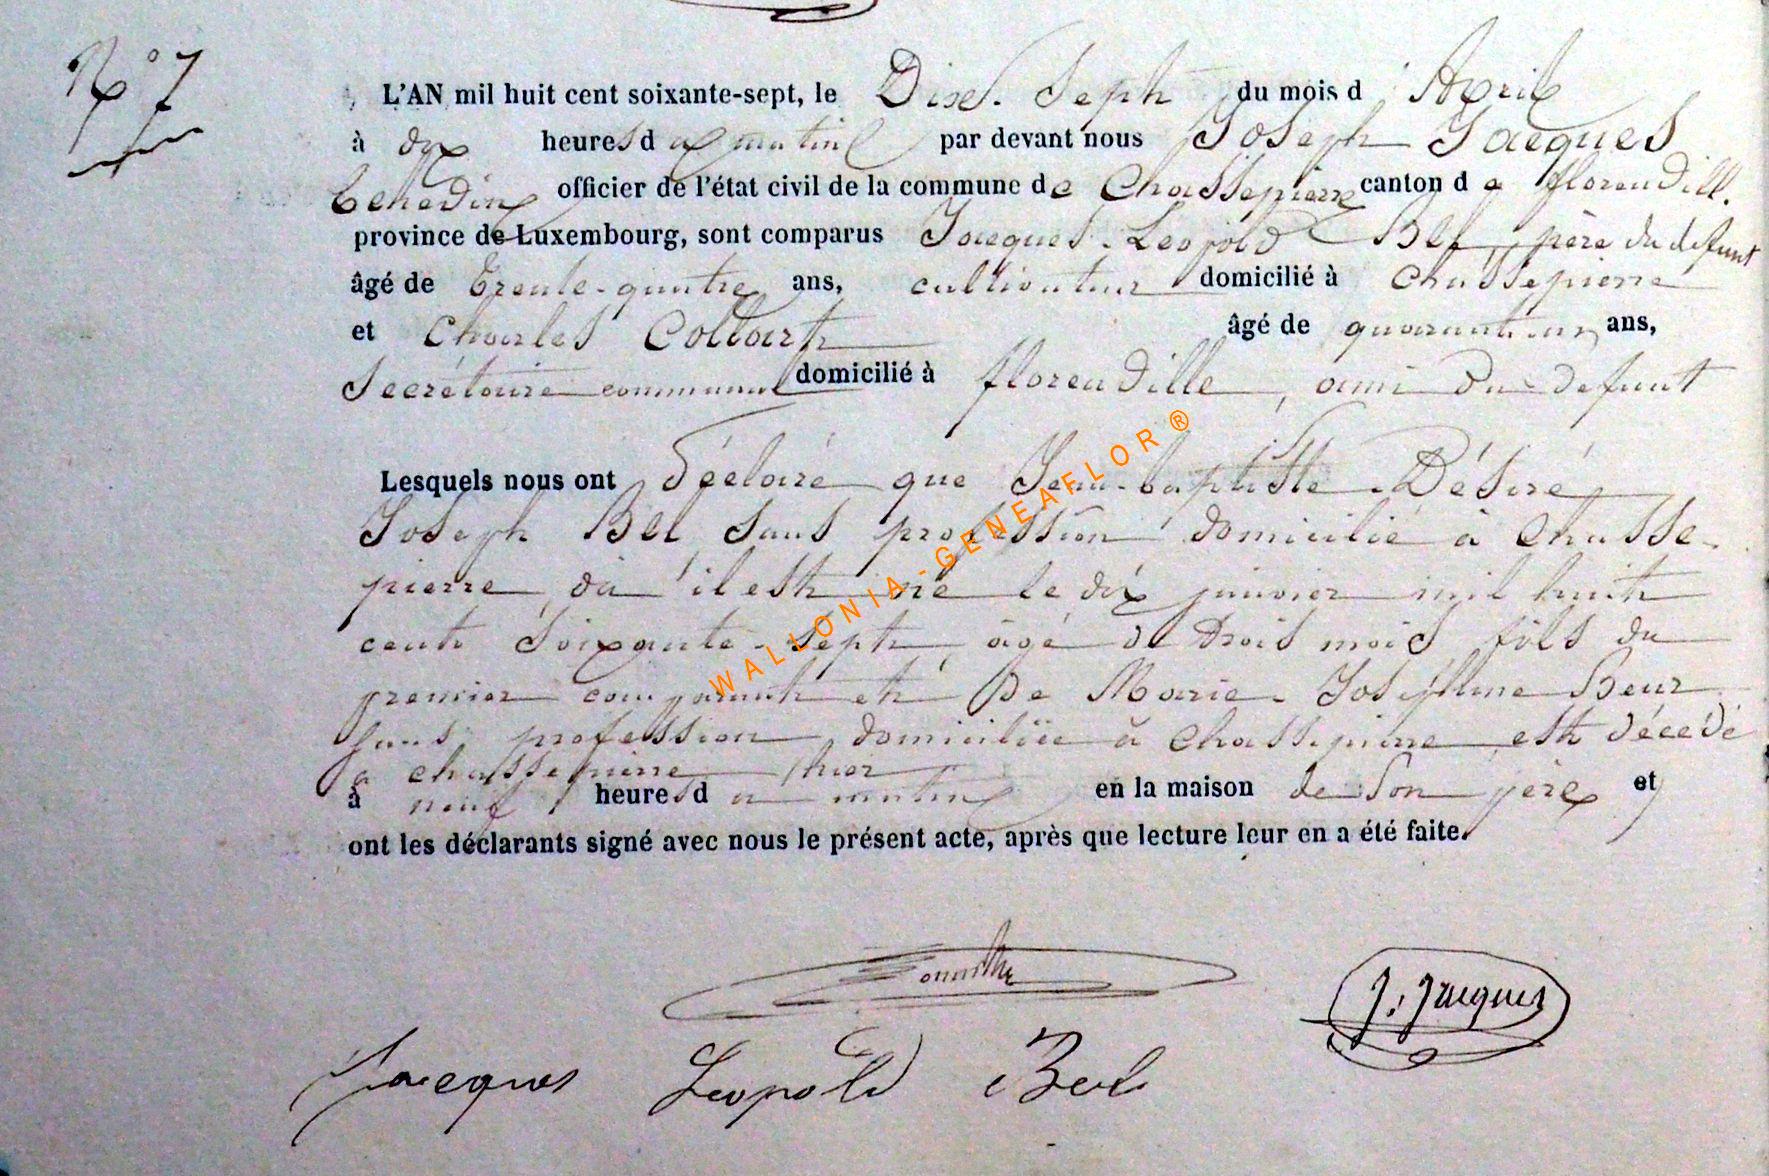 N° 7
L'AN mil huit cent soixante-sept, le Dix-Sept du mois d'Avril
à dix heures du matin par devant nous Joseph Jacques
officier de l'état civil de la commune de Chassepierre canton de florenville.
province de Luxembourg, sont comparus Jacques-Leopold Bel, père du defunt
âgé de Trente-quatre ans, cultivateur domicilié à Chassepierre
et Charles Collart âgé de quarante un ans,
Secrétaire communal domicilié à florenville, ami du defunt
Lesquels nous ont déclaré que Jean-baptiste Désiré
Joseph Bel, sans profession domicilié à Chasse-
pierre, où il est né le dix janvier mil huit
cent soixante-sept, âgé de trois mois, fils du
premier comparant et de Marie-Joséphine
sans profession domiciliée à Chassepierre, est décédé
à chassepierre hier
à neuf heures du matin en la maison de son père et
ont les déclarants signé avec nous le présent acte, après que lecture leur en a été faite.
J. Jacques
Jacques Leopold Bel
WALLONIA-GENEAFLOR ®